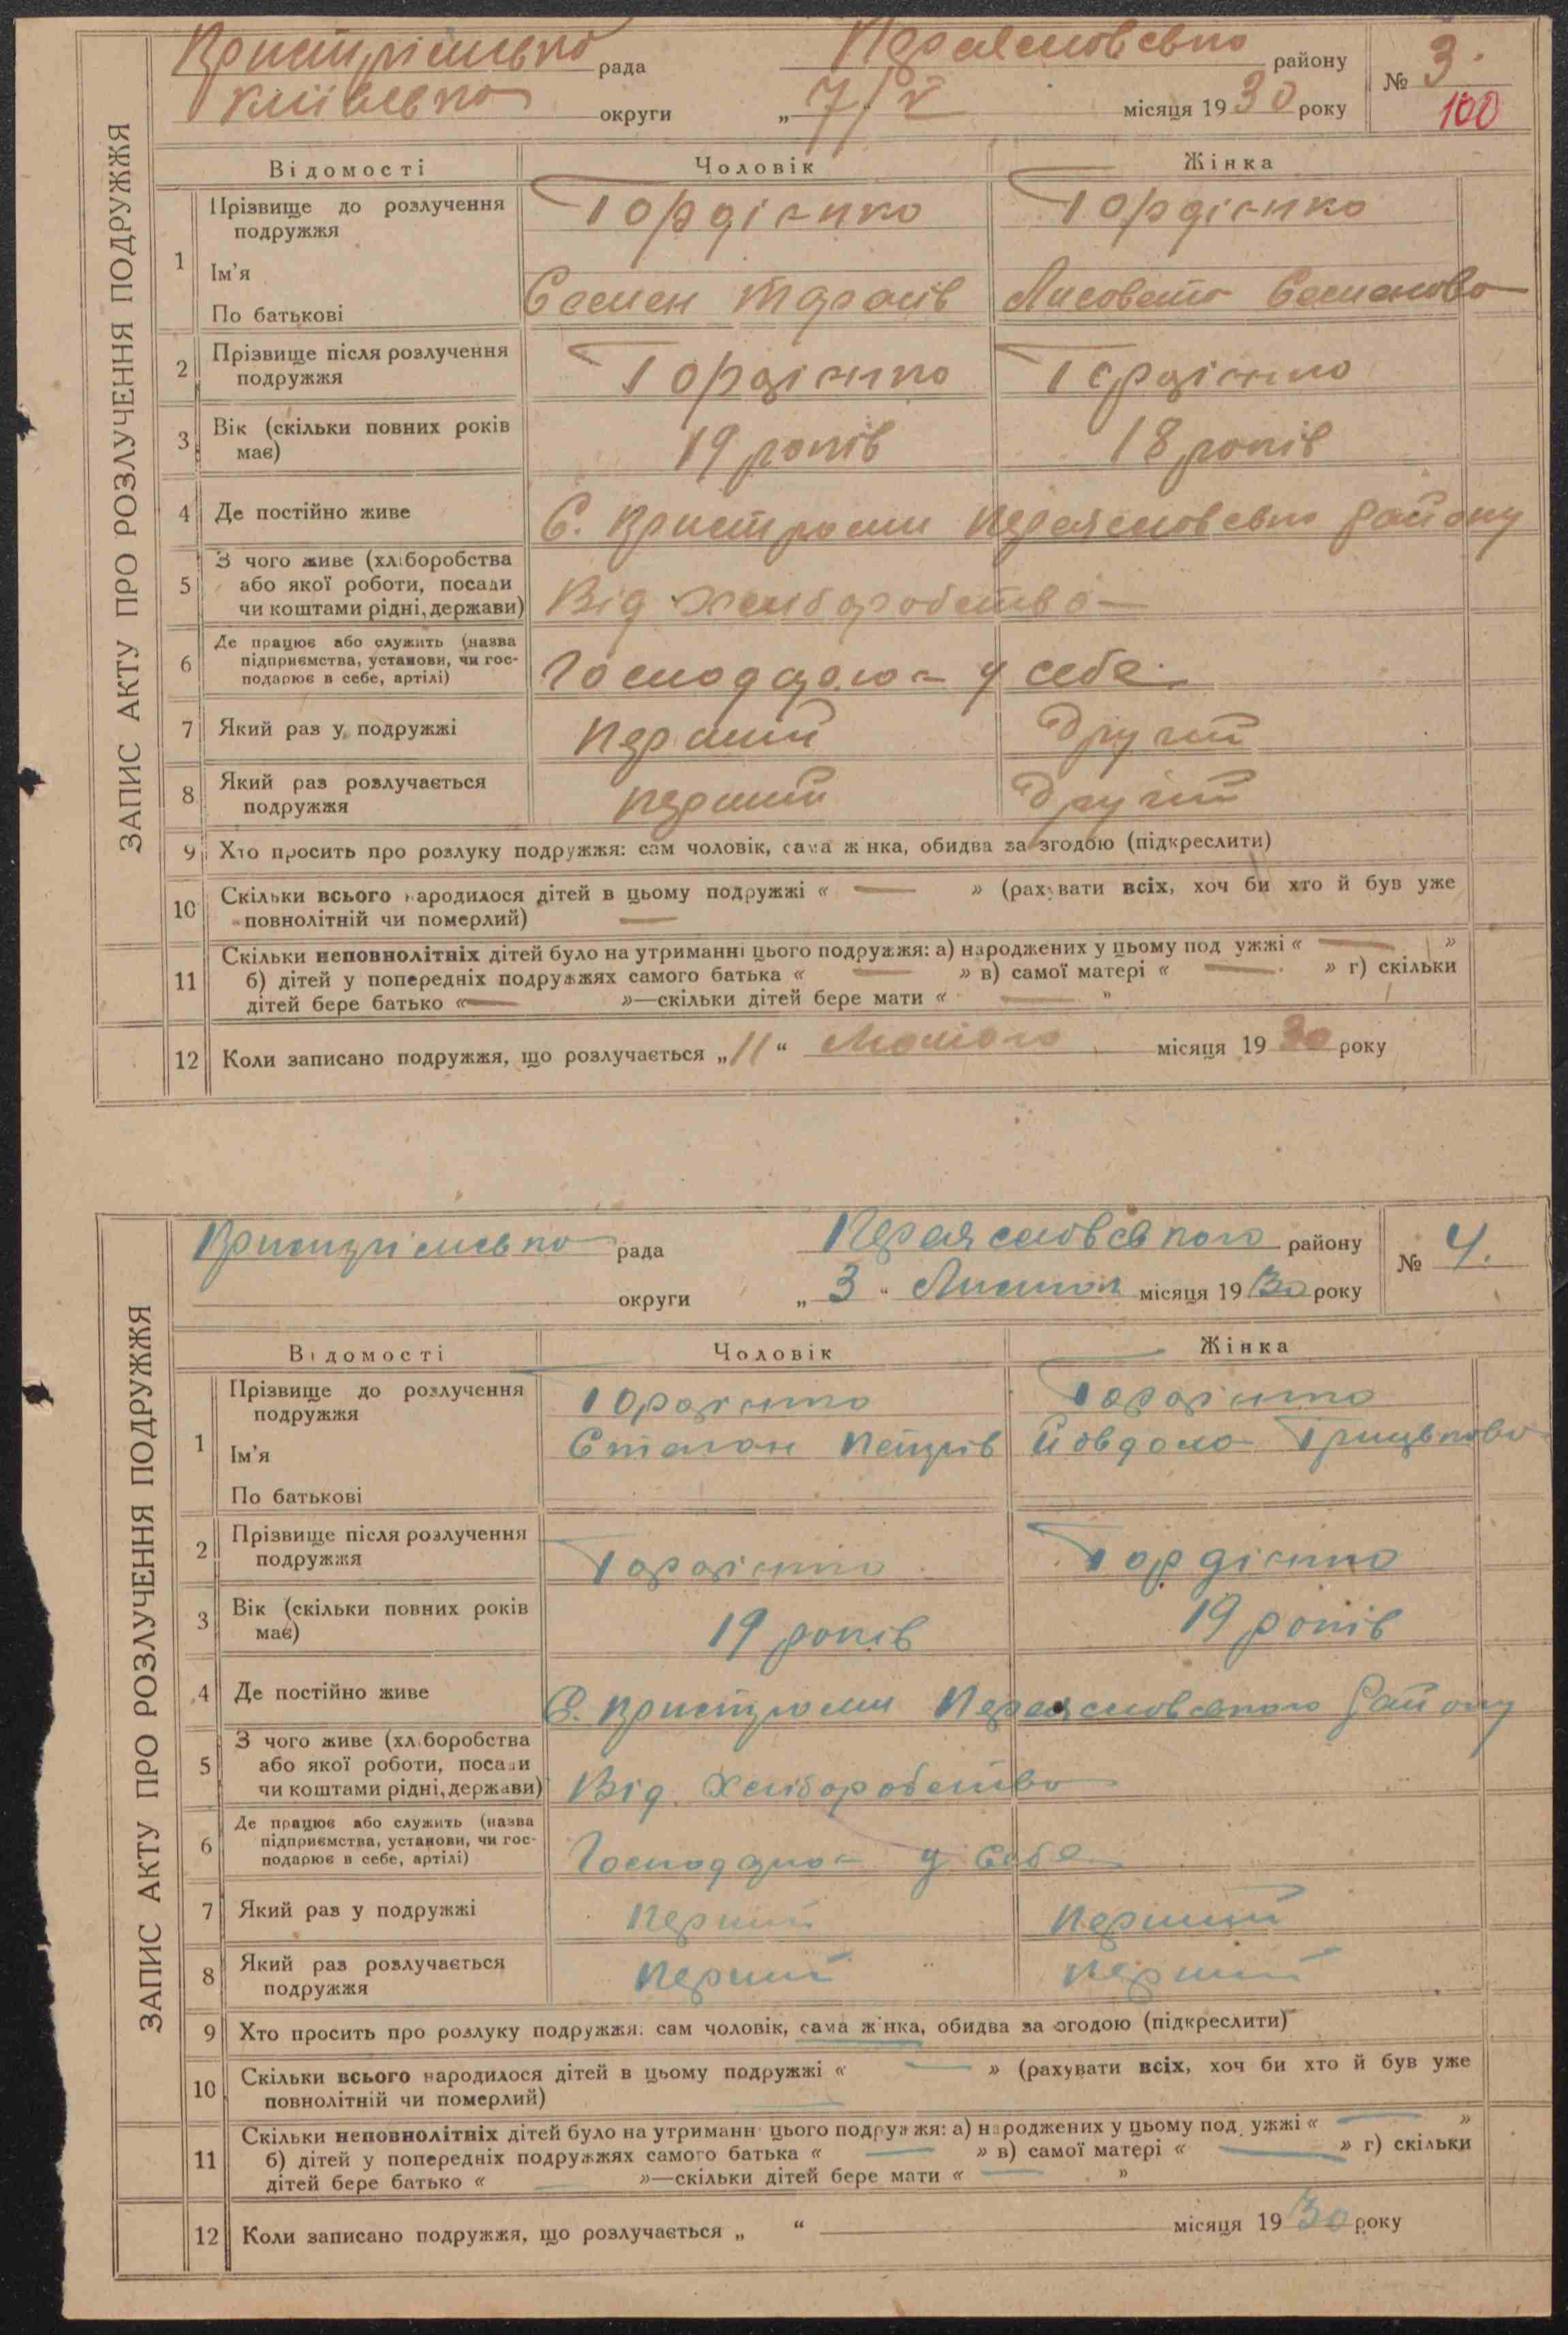 ЗАПИС АКТУ ПРО РОЗЛУЧЕННЯ ПОДРУЖЖЯ
Пристрімсько рада Переяславсько району № 3.
Київсько округи „ 7/V місяця 1930 року 100
Відомості Чоловік Жінка
1 Прізвище до розлучення Гордієнко Гордієнко
подружжя
Ім'я Семен Тарасів Лисовета Семенова
По батькові
2 Прізвище після розлучення Гордієнко Гордієнко
подружжя
3 Вік (скільки повних років 19 років 18 років
має)
4 Де постійно живе С. Пристроми Переяславсько району
5 З чого живе (хліборобства
або якої роботи, посади Від хліборобства
чи коштами рідні, держави)
6 Де працює або служить (назва
підприємства, установи, чи гос- у себе
подарює в себе, артілі)
7 Який раз у подружжі Перший Другий
8 Який раз розлучається Перший Другий
подружжя
9 Хто просить про розлуку подружжя: сам чоловік, сама жінка, обидва за згодою (підкреслити)
10 Скільки всього народилося дітей в цьому подружжі « — » (рахувати всіх, хоч би хто й був уже
повнолітній чи померлий) —
11 Скільки неповнолітніх дітей було на утриманні цього подружжя: а) народжених у цьому подружжі « — »
б) дітей у попередніх подружжях самого батька « — » в) самої матері « — » г) скільки
дітей бере батько « — »—скільки дітей бере мати « — »
12 Коли записано подружжя, що розлучається „ 11 “ Лютого місяця 1930 року
ЗАПИС АКТУ ПРО РОЗЛУЧЕННЯ ПОДРУЖЖЯ
Пристрімсько рада Переяславського району № 4.
округи „ 3 “ Листоп місяця 1930 року
Відомості Чоловік Жінка
1 Прізвище до розлучення Гордієнко Гордієнко
подружжя
Ім'я Степан Петрів Йовдоха Грицькова
По батькові
2 Прізвище після розлучення Гордієнко Гордієнко
подружжя
3 Вік (скільки повних років 19 років 19 років
має)
4 Де постійно живе С. Пристроми Переяславського району
5 З чого живе (хліборобства
або якої роботи, посади Від Хліборобства
чи коштами рідні, держави)
6 Де працює або служить (назва
підприємства, установи, чи гос- у себе
подарює в себе, артілі)
7 Який раз у подружжі Перший Перший
8 Який раз розлучається Перший Перший
подружжя
9 Хто просить про розлуку подружжя: сам чоловік, сама жінка, обидва за згодою (підкреслити)
10 Скільки всього народилося дітей в цьому подружжі « — » (рахувати всіх, хоч би хто й був уже
повнолітній чи померлий) —
11 Скільки неповнолітніх дітей було на утриманні цього подружжя: а) народжених у цьому подружжі « — »
б) дітей у попередніх подружжях самого батька « — » в) самої матері « — » г) скільки
дітей бере батько « — »—скільки дітей бере мати « — »
12 Коли записано подружжя, що розлучається „ “ місяця 1930 року